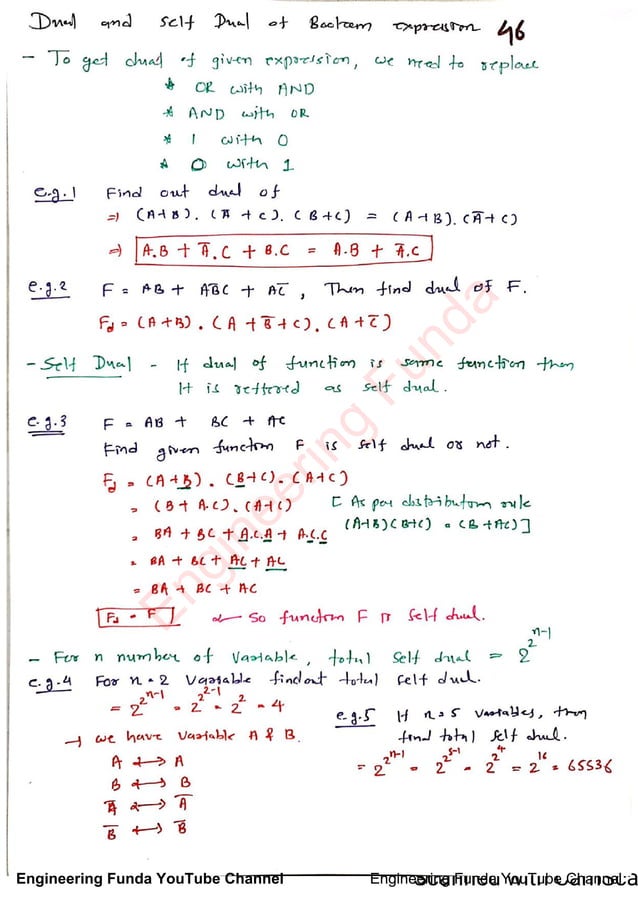 Dual and Self Dual of Boolean expression 46
- To get dual of given expression, we need to replace
* OR with AND
* AND with OR
* 1 with 0
* 0 with 1
e.g.1 Find out dual of
⇒ (A+B) . (A̅ + C) . (B+C) = (A+B) . (A̅ + C)
⇒ A.B + A̅.C + B.C = A.B + A̅.C
e.g.2 F = AB + AB̅C + AC̅ , Then find dual of F.
Fd = (A+B) . (A + B̅ + C) . (A + C̅)
- Self Dual - If dual of function is same function then
It is reffered as self dual.
e.g.3 F = AB + BC + AC
Find given function F is self dual or not.
Fd = (A+B) . (B+C) . (A+C)
= (B + A.C) . (A+C) [ As per distribution rule
(A+B)(B+C) = (B + AC) ]
= BA + BC + A.C.A + A.C.C
= BA + BC + AC + AC
= BA + BC + AC
Fd = F ← So function F is self dual.
- For n number of Variable, total self dual = 2^2^n-1
e.g.4 For n = 2 Variable findout total self dual.
= 2^2^n-1 = 2^2^2-1 = 2^2 = 4
→ we have variable A & B.
A ↔ A
B ↔ B
A̅ ↔ A̅
B̅ ↔ B̅
e.g.5 If n = 5 variables, then
find total self dual.
= 2^2^n-1 = 2^2^5-1 = 2^2^4 = 2^16 = 65536
Engineering Funda
Engineering Funda YouTube Channel
Engineering Funda YouTube Channel